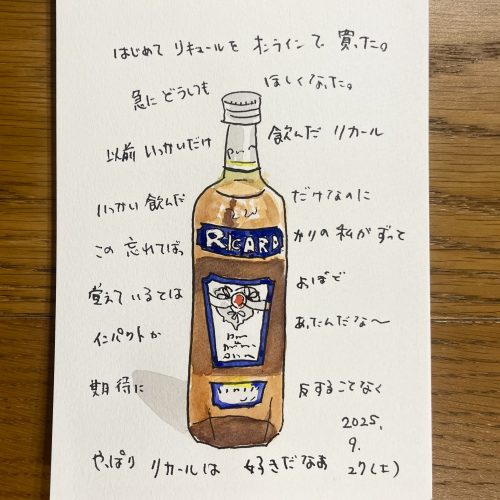 はじめて リキュールを オンラインで 買った。
急に どうしても ほしくなった。
以前 いっかいだけ 飲んだ リカール
いっかい 飲んだ だけなのに
この 忘れてばっ かりの 私が ずって
覚えているては よほどで
インパクトが あったんだな〜
期待に 反することなく
やっぱり リカールは 好きだなあ
RICARD
2025.
9.
27(土)